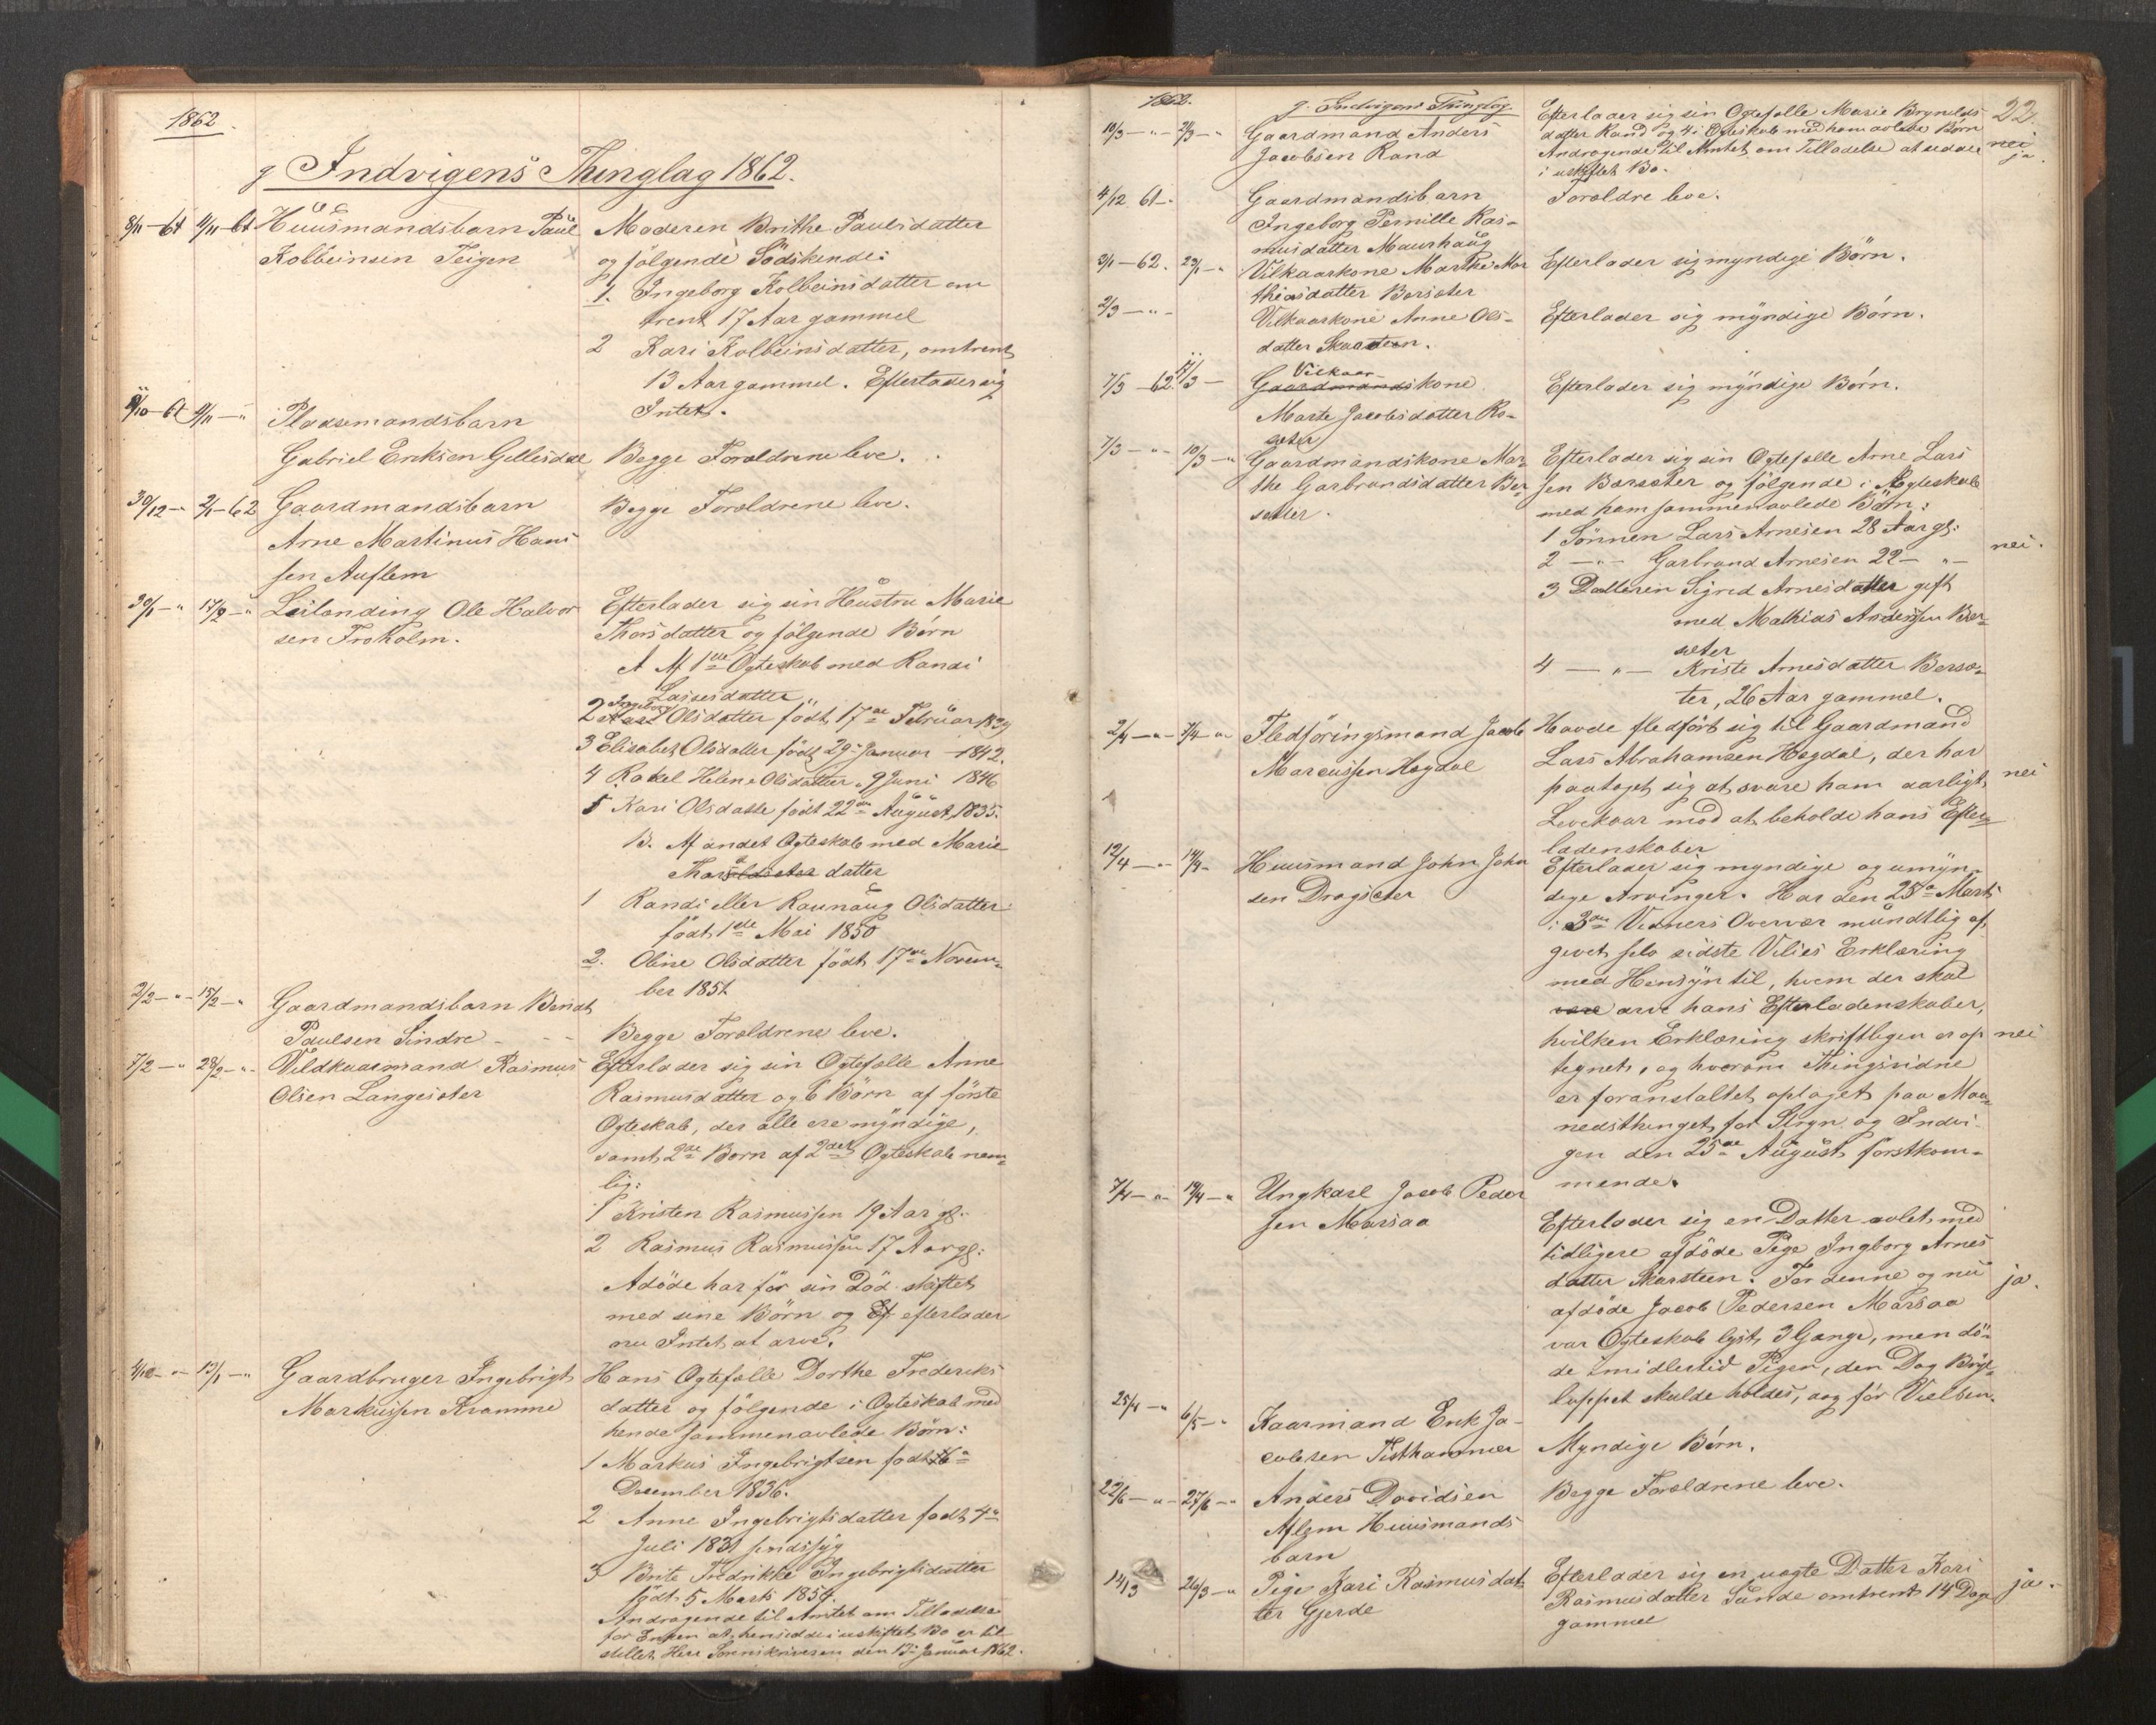 1862.
g Indvigens Thinglag 1862.
8/11-61 11/11-61 Huusmandsbarn Paul
Kolbeinsen Teigen
Moderen Brithe Paulsdatter
og følgende Södskende:
1. Ingeborg Kolbeinsdatter om
trent 17 Aar gammel
2 Kari Kolbeinsdatter, omtrent
13 Aar gammel. Efterlader sig
Intet.
Pladsemandsbarn
Gabriel Eriksen Gellesdal
Begge Forældrene leve.
30/12-" 2/1-62 Gaardmandsbarn
Arne Martinus Hans
sen Auflem
Begge Forældrene leve.
30/1-" 17/2-" Leilending Ole Halvor
sen Froholm.
Efterlader sig sin Hustru Marie
Thorsdatter og følgende Börn
A Af 1ste Ogteskab med Randi
Lassesdatter
2 Ingeborg Olsdatter födt 17de Februar 1839
3 Elisabet Olsdatter födt 29de Januar 1842.
4 Rakel Helene Olsdatter 9 Juni 1846
5 Kari Olsdatte födt 22de August 1835.
B. Af andet Ogteskab med Marie
Thors datter
1 Randi eller Raunaug Olsdatter
födt 1ste Mai 1850
2. Oline Olsdatter födt 17de Novem-
ber 1851
2/2-"- 15/2-" Gaardmandsbarn Bendt
Paulsen Sindre
Begge Forældrene leve.
7/2-" 28/2-"- Vildkaarmand Rasmus
Olsen Langesæter
Efterlader sig sin Ogtefælle Anne
Rasmusdatter og 6 Börn af förste
Ogteskab, der alle ere myndige,
samt 2de Børn af 2det Ogteskab nem-
lig:
1 Kristen Rasmussen 19 Aar gl.
2 Rasmus Rasmussen 17 Aar gl:
Adöde har för sin Död skiftet
med sine Börn og Ef efterlader
nu Intet at arve.
13/1-" Gaardbruger Ingebrigt
Markussen Kramme
Hans Ogtefælle Dorthe Frederiks
datter og følgende i Ogteskab med
hende sammenavlede Börn:
1 Markus Ingebrigtsen födt 16de
Desember 1836.
2 Anne Ingebrigtsdatter födt 4de
Juli 1831 sindssyg
3 Brite Fredrikke Ingebrigtsdatter
födt 5 Marts 1859.
Andragende til Amtet om Tilladelse
for Enken at hensidde i uskiftet Bo er til
stillet Herr Sorenskriveren den 13de Januar 1862.
1862.
g. Indvigens Thinglag
22
10/3-"- Gaardmand Anders
Jacobsen Rand
Efterlader sig sin Ogtefelle Marie Brynilds
datter Rand og 4 i Ogteskab med ham avlede Børn
Andragende til Amtet om Tilladelse at sidde
i uskiftet Bo.
nei
ja
4/12 61-
Gaardmandsbarn
Ingeborg Pernille Ras-
musdatter Maurhaug
Forældre leve.
3/1-62. 29/1-" Vilkaarkone Marthe Mat
thiasdatter Bersæter
Efterlader sig myndige Börn.
2/3-"-
Vilkaarkone Anne Ols-
datter Skaasteen.
Efterlader sig myndige Börn.
7/3-62 11/3-
Vilkaar
Gaardmandskone
Marte Jacobsdatter Ro-
seter
Efterlader sig myndige Börn.
7/3-"- 10/3-" Gaardmandskone Mar-
the Garbrandsdatter Ber-
sætter.
Efterlader sig sin Ogtefælle Arne Lars
sen Bersæter og følgende i Ægteskab
med ham sammenavlede Börn:
1 Sönnen Lars Arnesen 28 Aar gl:
2 -"- Garbrand Arnesen 22 - "-
nei.
3 Datteren Sigrid Arnesdatter gift
med Mathias Anderssen Ber-
sæter
4 -"- Kriste Arnesdatter Bersæ-
ter, 26 Aar gammel.
2/4-"- 7/4-" Fledføringsmand Jacob
Marcussen Hegdal
Havde fledført sig til Gaardmand
Lars Abrahamsen Hegdal, der har
paataget sig at svare ham aarligt
Levekaar mod at beholde hans Efter-
ladenskaber
nei
12/4-"- 14/4- Huusmand John John
sen Dragseter
Efterlader sig myndige og umyn-
dige Arvinger. Har den 25de Marts
i 3de Vidners Overvær mundtlig af
givet selv sidste Vilies Erklæring
med Hensyn til, hvem der skal
være arve hans Efterladenskaber,
hvilken Erklæring skriftligen er op
tegnet, og hvorom Thingsvidne
er foranstaltet optaget paa Maa-
nedsthinget for Stryn og Indvi-
gen den 25de August førstkom-
mende.
nei
7/4-"- 14/4-" Ungkarl Jacob Peder
sen Marsaa
Efterlader sig en Datter avlet med
tidligere afdöde Pige Ingborg Arnes
datter Skarsteen. For denne og nu
afdöde Jacob Pedersen Marsaa
var Ogteskab lyst 3 Gange, men dö-
de imidlertid Pigen, den Dag Bryl-
luppet skulde holdes, dog för Vielsen.
ja.
25/4-" 6/5-"
Kaarmand Erik Ja-
cobsen Tisthammer
Myndige Börn.
22/6-"- 27/6-" Anders Davidsen
Aflem Huusmands
barn
Begge Forældrene leve.
14/3 26/3-" Pige Kari Rasmusdat
ter Gjerde
Efterlader sig en uægte Datter Kari
Rasmusdatter Sunde omtrent 14 Dage
gammel
ja.